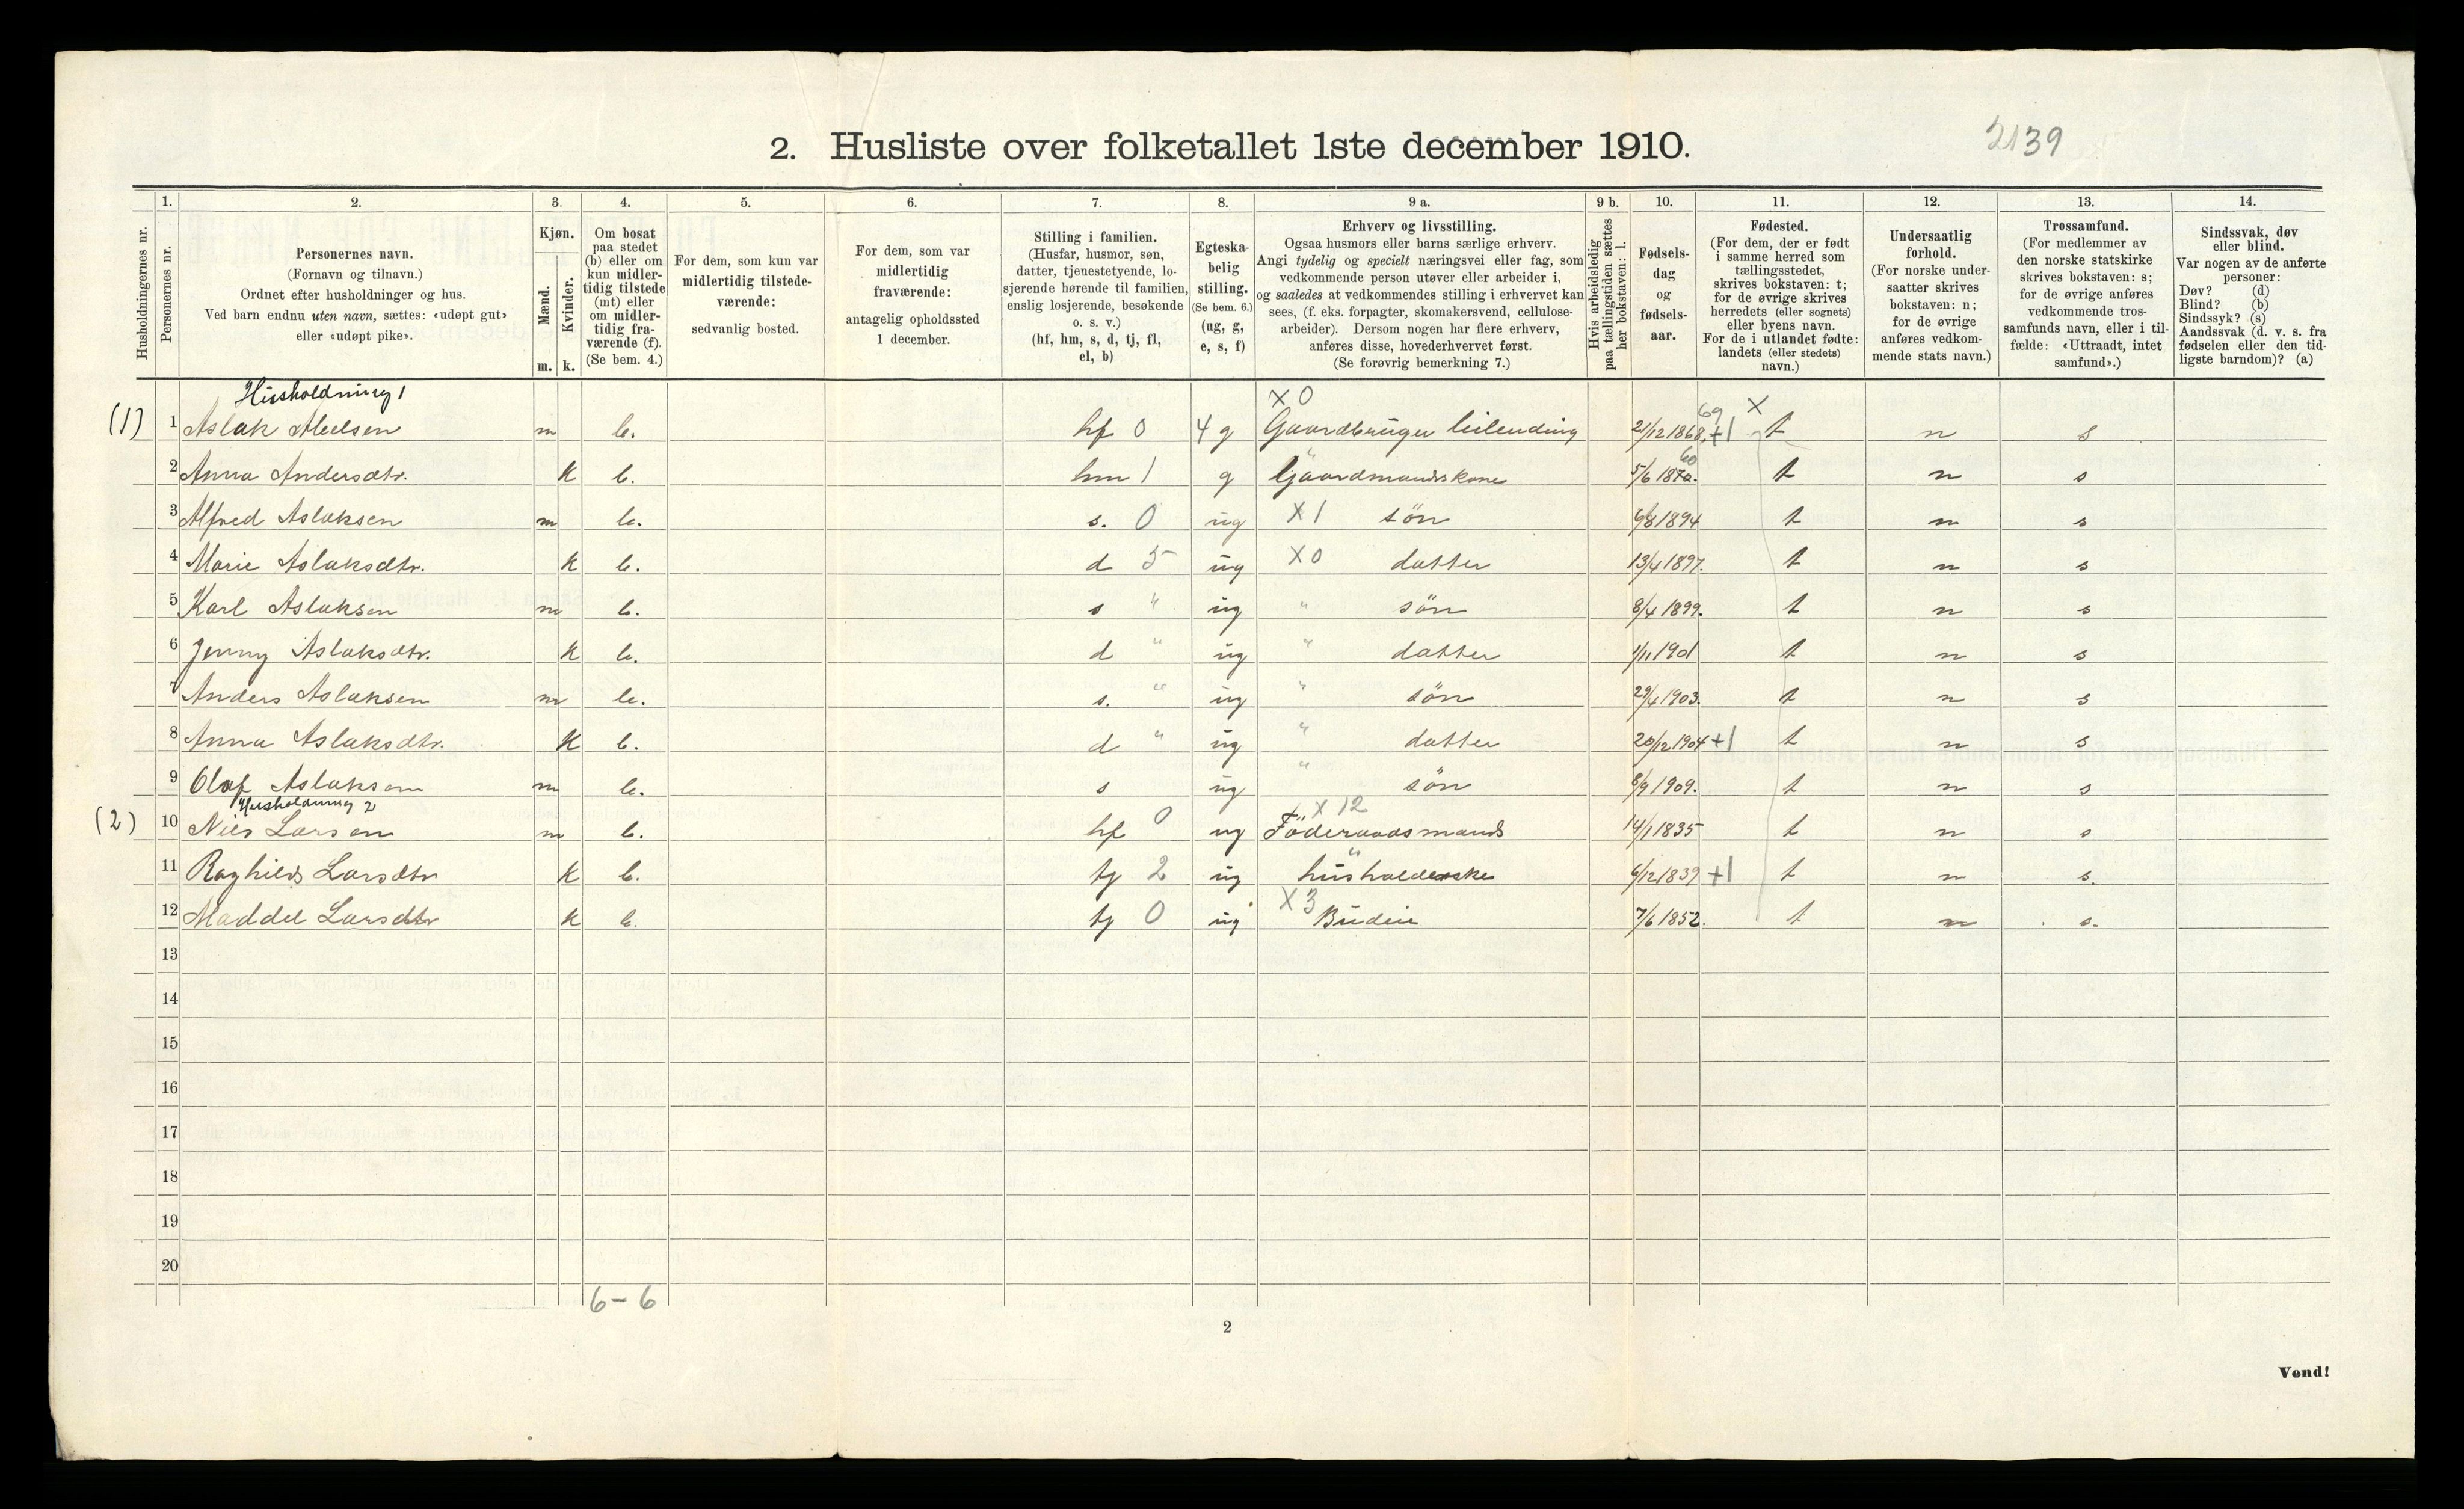 2. Husliste over folketallet 1ste december 1910.
2139
1. 2. 3. 4. 5. 6. 7. 8. 9 a. 9 b. 10. 11. 12. 13. 14.
Husholdningernes nr.
Personernes nr.
Personernes navn.
(Fornavn og tilnavn.)
Ordnet efter husholdninger og hus.
Ved barn endnu uten navn, sættes: «udøpt gut»
eller «udøpt pike».
Kjøn.
Mænd.
Kvinder.
m. k.
Om bosat
paa stedet
(b) eller om
kun midler-
tidig tilstede
(mt) eller
om midler-
tidig fra-
værende (f).
(Se bem. 4.)
For dem, som kun var
midlertidig tilstede-
værende:
sedvanlig bosted.
For dem, som var
midlertidig
fraværende:
antagelig opholdssted
1 december.
Stilling i familien.
(Husfar, husmor, søn,
datter, tjenestetyende, lo-
sjerende hørende til familien,
enslig losjerende, besøkende
o. s. v.)
(hf, hm, s, d, tj, fl,
el, b)
Egteska-
belig
stilling.
(Se bem. 6.)
(ug, g,
e, s, f)
Erhverv og livsstilling.
Ogsaa husmors eller barns særlige erhverv.
Angi tydelig og specielt næringsvei eller fag, som
vedkommende person utøver eller arbeider i,
og saaledes at vedkommendes stilling i erhvervet kan
sees, (f. eks. forpagter, skomakersvend, cellulose-
arbeider). Dersom nogen har flere erhverv,
anføres disse, hovederhvervet først.
(Se forøvrig bemerkning 7.)
Hvis arbeidsledig
paa tællingstiden sættes
her bokstaven: l.
Fødsels-
dag
og
fødsels-
aar.
Fødested.
(For dem, der er født
i samme herred som
tællingsstedet,
skrives bokstaven: t;
for de øvrige skrives
herredets (eller sognets)
eller byens navn.
For de i utlandet fødte:
landets (eller stedets)
navn.)
Undersaatlig
forhold.
(For norske under-
saatter skrives
bokstaven: n;
for de øvrige
anføres vedkom-
mende stats navn.)
Trossamfund.
(For medlemmer av
den norske statskirke
skrives bokstaven: s;
for de øvrige anføres
vedkommende tros-
samfunds navn, eller i til-
fælde: «Uttraadt, intet
samfund».)
Sindssvak, døv
eller blind.
Var nogen av de anførte
personer:
Døv? (d)
Blind? (b)
Sindssyk? (s)
Aandssvak (d. v. s. fra
fødselen eller den tid-
ligste barndom)? (a)
Husholdning 1 X 0 69 X
(1) 1 Aslak m b. hf 0 4 g Gaardbruger leilending 21/12 1868 +1 t n s
2 Anna Andersdtr. K b. hm 1 g " Gaardmandskone 5/6 1870. 60 t n s
3 Alfred Aslaksen m b. s. 0 ug X 1 søn 6/8 1894 t n s
4 Marie Aslaksdtr. K b. d 5 ug X 0 datter 13/4 1897. t n s
5 Karl Aslaksen m b. s " ug " søn 8/4 1899. t n s
6 Jenny Aslaksdtr. K b. d " ug " datter 1/11 1901 t n s
7 Anders Aslaksen m b. s. " ug " søn 29/4 1903. t n s
8 Anna Aslaksdtr. K b. d " ug " datter 20/12 1904 +1 t n s
9 Olaf Aslaksen m b. s ug " søn 8/9 1909. t n s
Husholdning 2 X 12
(2) 10 Nils Larsen m b. hf 0 ug Föderaadsmand 14/1 1835 t n s
11 Raghild Larsdtr K b. tj 2 ug " husholderske 6/12 1839 +1 t n s.
12 Maddel Larsdtr K b. tj 0 ug X 3 Budeie 7/6 1852. t n s.
13
14
15
16
17
18
19
20
6 - 6
2
Vend!